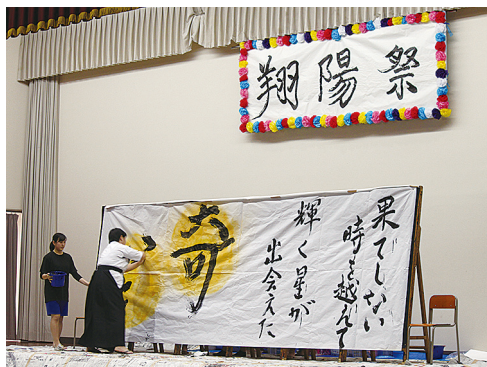 翔陽祭
果てしない
時を越えて
輝く星が
出会えた
奇